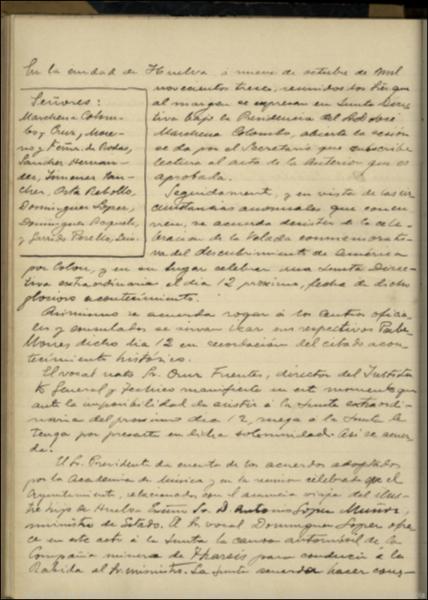 En la ciudad de Huelva á nueve de octubre de mil
novecientos trece, reunidos los Sres que
al margen se expresan en Junta Direc-
tiva bajo la Presidencia de D. José
Marchena Colombo, abierta la sesión
se da por el Secretario que subscribe
lectura al acta de la anterior que es
aprobada.
Señores:
Marchena Colom-
bo y Cruz, More-
no y
Sanchez Hernan-
dez, Jimenez San-
chez, Oota Rebollo,
Dominguez Lopez,
Dominguez Roqueta,
y Garrido Perelló,
Seguidamente, y en vista de las cir-
cunstancias anormales que concu-
rren, se acuerda desistir de la cele-
bracion de la Velada conmemorati-
va del descubrimiento de América
por Colon, y en su lugar celebrar una Junta Direc-
tiva extraordinaria el dia 12 proximo, fecha de dicho
glorioso acontecimiento.
Asimismo se acuerda rogar á los Centros oficia-
les y consulados se sirvan izar sus respectivos Pabe-
llones dicho dia 12 en recordación del citado acon-
tecimiento histórico.
El vocal nato Sr. Cruz Fuentes, director del Instituto
General y Tecnico manifiesta en este momento que
ante la imposibilidad de asistir á la Junta extraordi-
naria del proximo dia 12, ruega á la Junta le
tenga por presente en dicha solemnidad. Asi se acuer-
da.
El Sr. Presidente da cuenta de los acuerdos adoptados
por la Academia de Música y en la reunión celebrada en el
Ayuntamiento, relacionados con el anuncio viaje del ilus-
tre hijo de Huelva Excmo Sr. D. Antonio López Muñoz,
ministro de Estado. El vocal Dominguez Lopez ofre-
ce en este acto á la Junta la canoa automóvil de la
Compañia minera de Tharsis para conducir á la
Rabida al Sr. ministro. La Junta acuerda hacer cons-